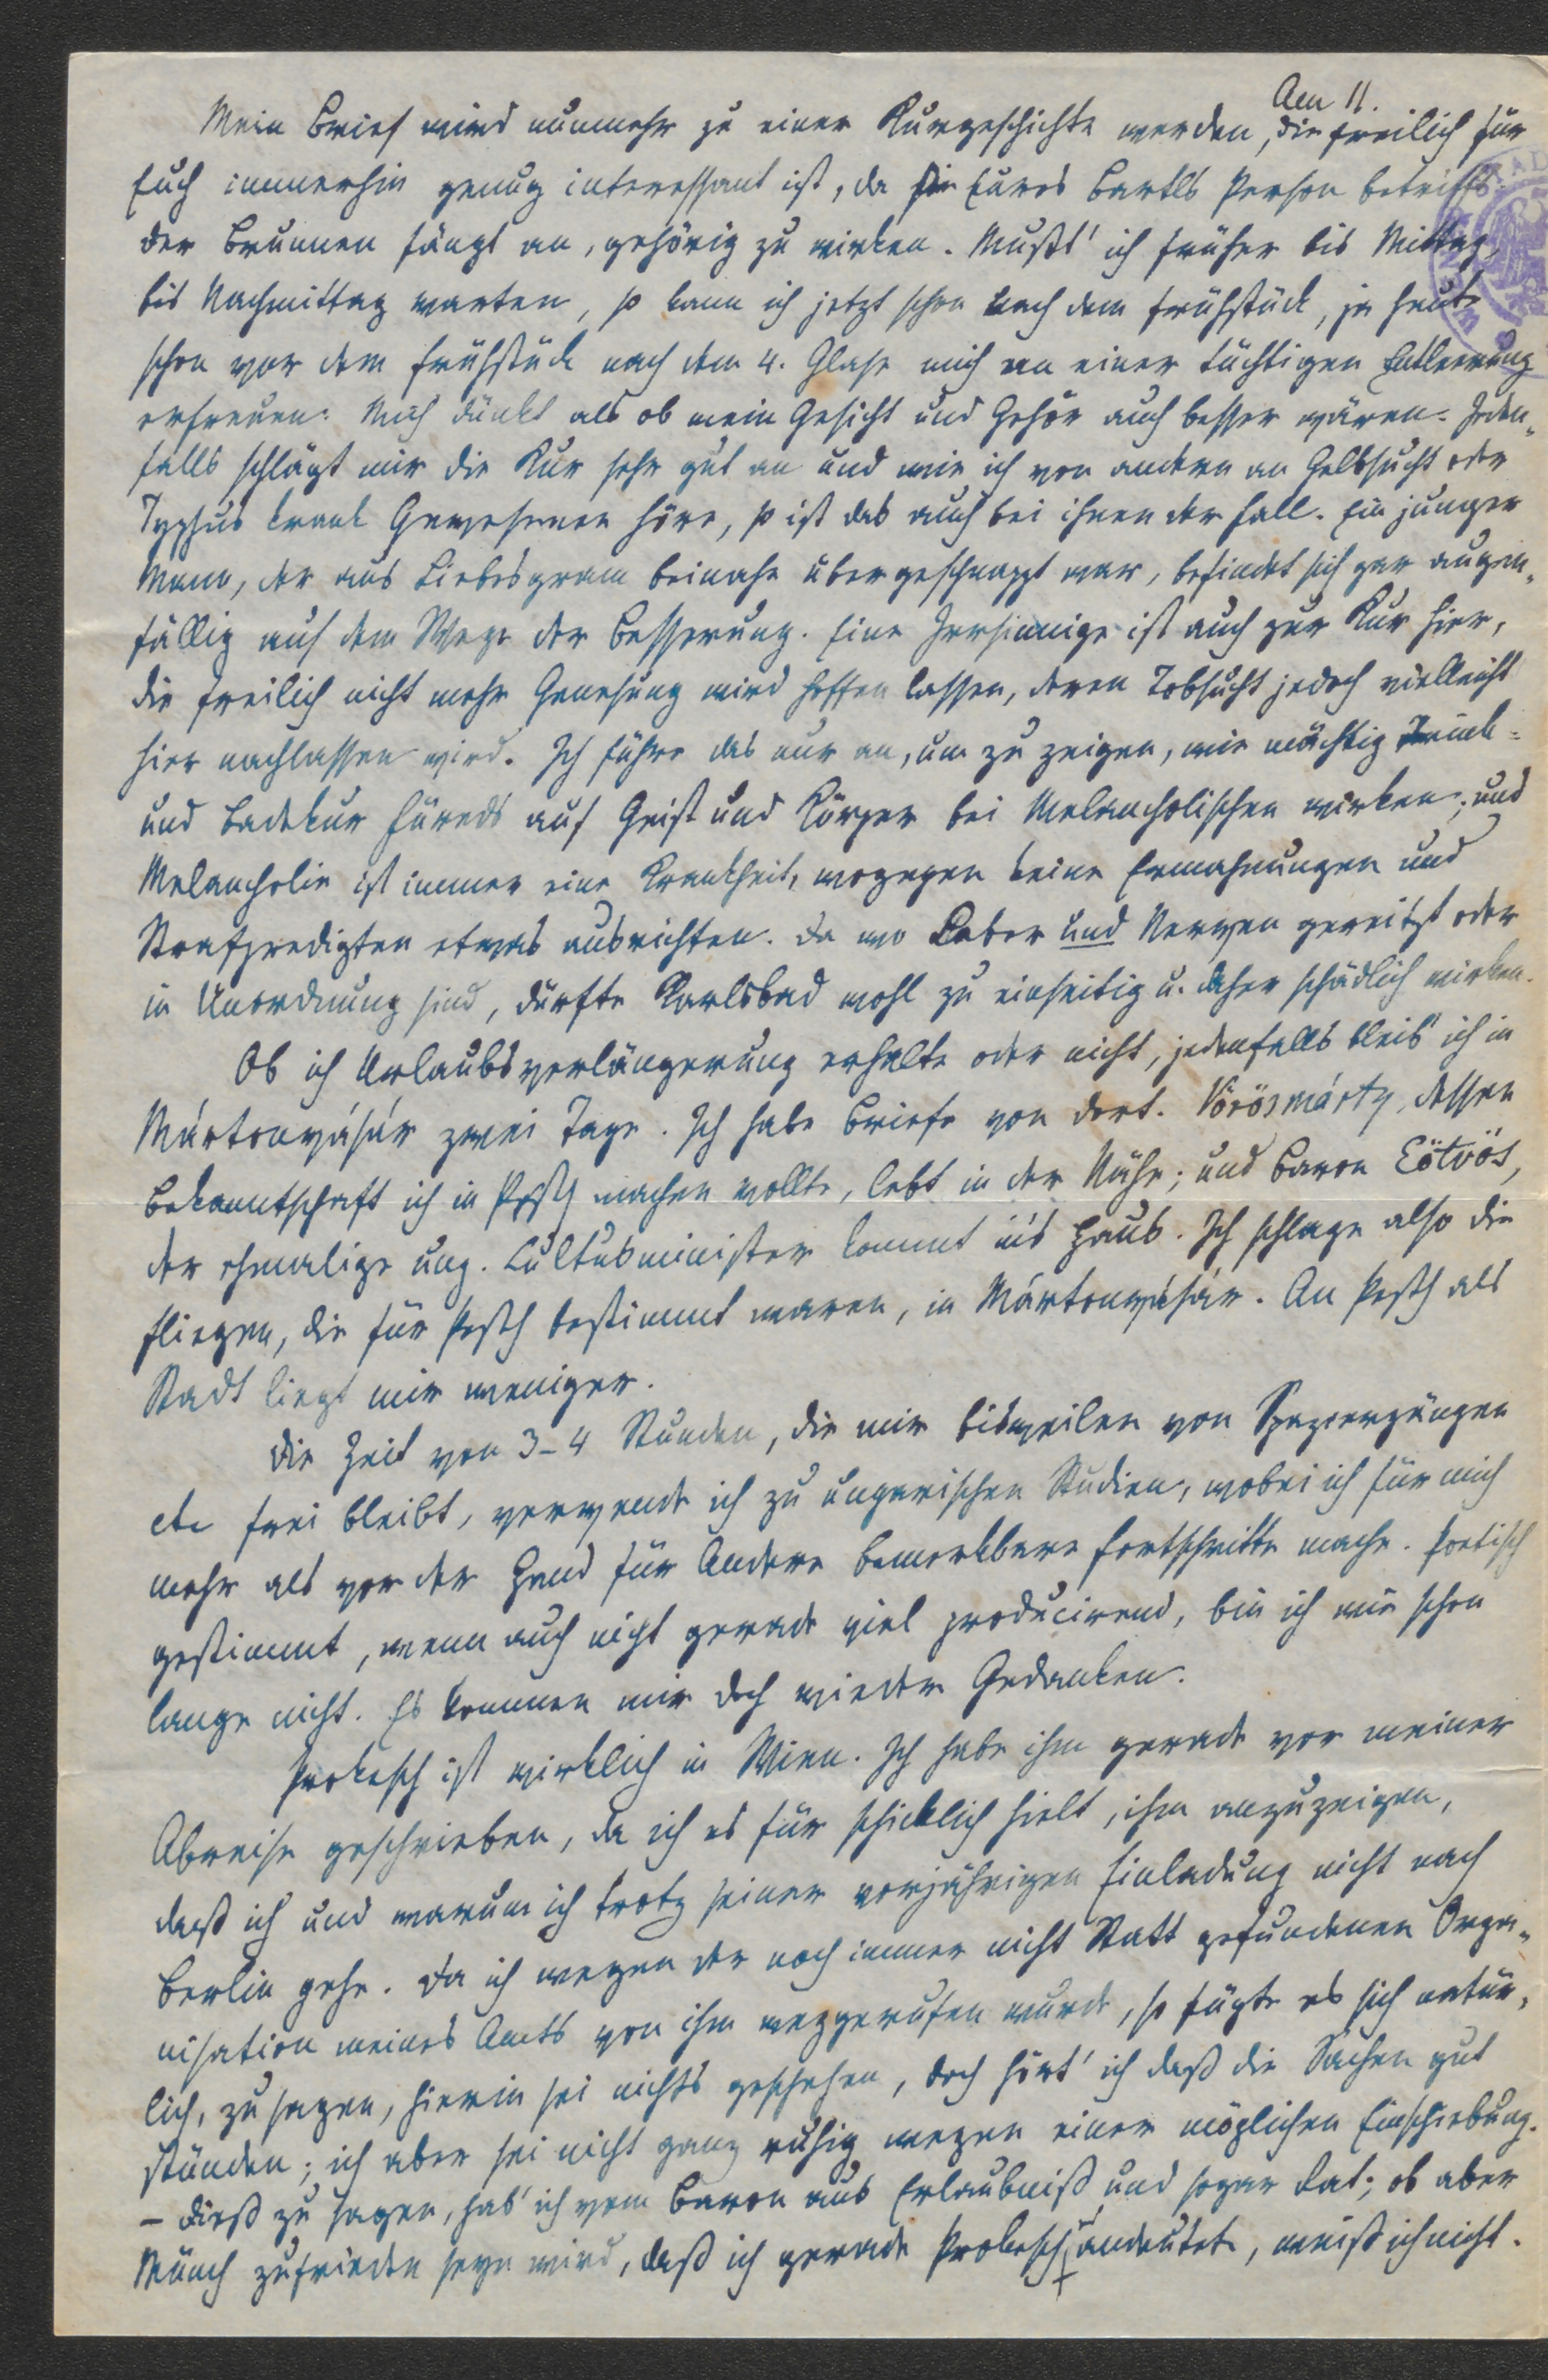 Am 11.
Mein Brief wird nunmehr zu einer Kurgeschichte werden, die freilich für
Euch immerhin genug interessant ist, da sie Eures Bartls Person betrifft.
Der Brunnen fängt an, gehörig zu wirken. Mußt' ich früher bis Mittag,
bis Nachmittag warten, so kann ich jetzt schon nach dem Frühstück, ja heute
schon vor dem Frühstück nach dem 4. Glase mich an einer tüchtigen Entleerung
erfreuen. Mich dünkt als ob mein Gesicht und Gehör auch besser wären. Jeden„
falls schlägt mir die Kur sehr gut an und wie ich von andern an Gelbsucht oder
Typhus krank Gewesenen höre, so ist das auch bei ihnen der Fall. Ein junger
Mann, der aus Liebesgram beinahe übergeschnappt war, befindet sich gar augen„
fällig auf dem Wege der Besserung. Eine Irrsinnige ist auch zur Kur hier,
die freilich nicht mehr Genesung wird hoffen lassen, deren Tobsucht jedoch vielleicht
hier nachlassen wird. Ich führe das nur an, um zu zeigen, wie mächtig Trink-
und Badekur Füreds auf Geist und Körper bei Melancholischen wirken; und
Melancholie ist immer eine Krankheit, wogegen keine Ermahnungen und
Strafpredigten etwas ausrichten. Da wo Leber und Nerven gereitzt oder
in Unordnung sind, dürfte Karlsbad wohl zu einseitig u. daher schädlich wirken.
Ob ich Urlaubsverlängerung erhalte oder nicht, jedenfalls bleib' ich in
Mártonvásár zwei Tage. Ich habe Briefe von dort. Vörösmárty, dessen
Bekanntschaft ich in Pesth machen wollte, lebt in der Nähe; und Baron Eötvös,
der ehmalige ung. Cultusminister kommt in's Haus. Ich schlage also die
Fliegen, die für Pesth bestimmt waren, in Mártonvásár. An Pesth als
Stadt liegt mir weniger.
Die Zeit von 3-4 Stunden, die mir bisweilen von Spaziergängen
etc frei bleibt, verwende ich zu ungarischen Studien, wobei ich für mich
mehr als vor der Hand für Andere bemerkbare Fortschritte mache. Poetisch
gestimmt, wenn auch nicht gerade viel producirend, bin ich wie schon
lange nicht. Es kommen mir doch wieder Gedanken.
Prokesch ist wirklich in Wien. Ich habe ihm gerade vor meiner
Abreise geschrieben, da ich es für schicklich hielt, ihm anzuzeigen,
daß ich und warum ich trotz seiner vorjährigen Einladung nicht nach
Berlin gehe. Da ich wegen der noch immer nicht Statt gefundenen Orga„
nisation meines Amts von ihm weggerufen wurde, so fügte es sich natür„
lich, zu sagen, hierin sei nichts geschehen, doch hört' ich daß die Sachen gut
stünden; ich aber sei nicht ganz ruhig wegen einer möglichen Einschiebung.
– Dieß zu sagen, hab' ich vom Baron aus Erlaubniß und sogar Rat; ob aber
Münch zufrieden seyn wird, daß ich gerade Prokesch andeutete, weiß ich nicht.